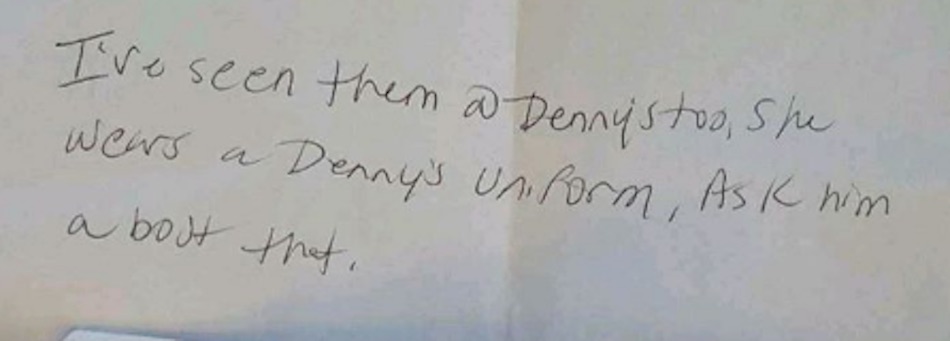 I've seen them @ Denny's too, She
wears a Denny's Uniform, Ask him
a bout that.